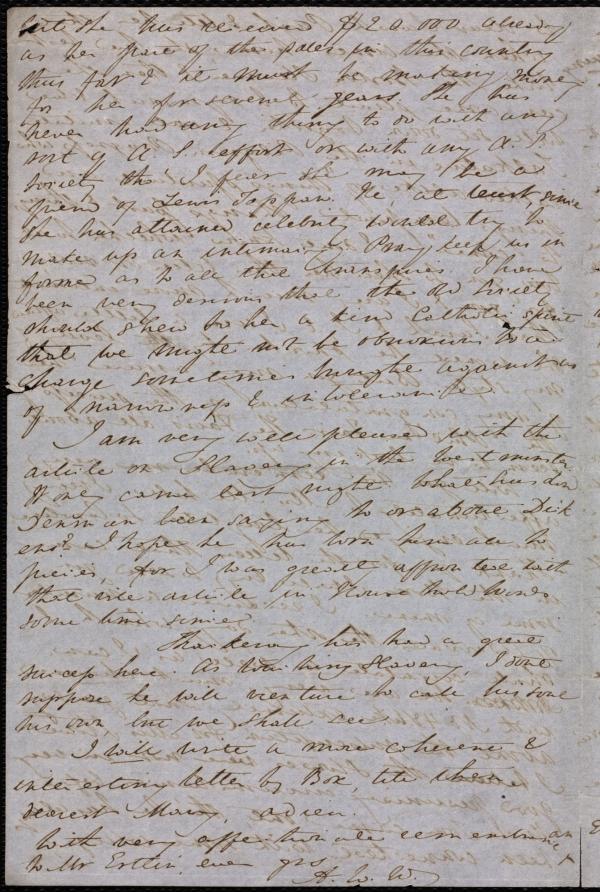 but she has received $20.000 already
as her part of the sales in this country
thus far & it must be making money
for her for several years She has
never had any thing to do with any
sort of A. S. effort or with any A. S.
Society tho' I fear she may be a
friend of Lewis Tappan. He, at least, since
she has attained celebrity would try to
make up an intimacy Pray keep us in
formed as to all that transpires I have
been very desirous that the Old Society
should shew to her a kind Catholic spirit
that we might not be obnoxious to a
charge sometimes brought against us
of narrowness & intolerance.
I am very well pleased with the
article on Slavery in the Westminster
It only came last night. What has Ld
Denman been saying to or about Dick
ens? I hope he has torn him all to
pieces, for I was greatly affronted with
that vile article in Household Words
some time since
Thackeray has had a great
success here. As touching Slavery, I dont
suppose he will venture to call his soul
his own, but we shall see
I will write a more coherent &
interesting letter by Box, till then
dearest Mary, adieu.
With very affectionate remembrance
to Mr Estlin, ever yrs,
A. W. W.